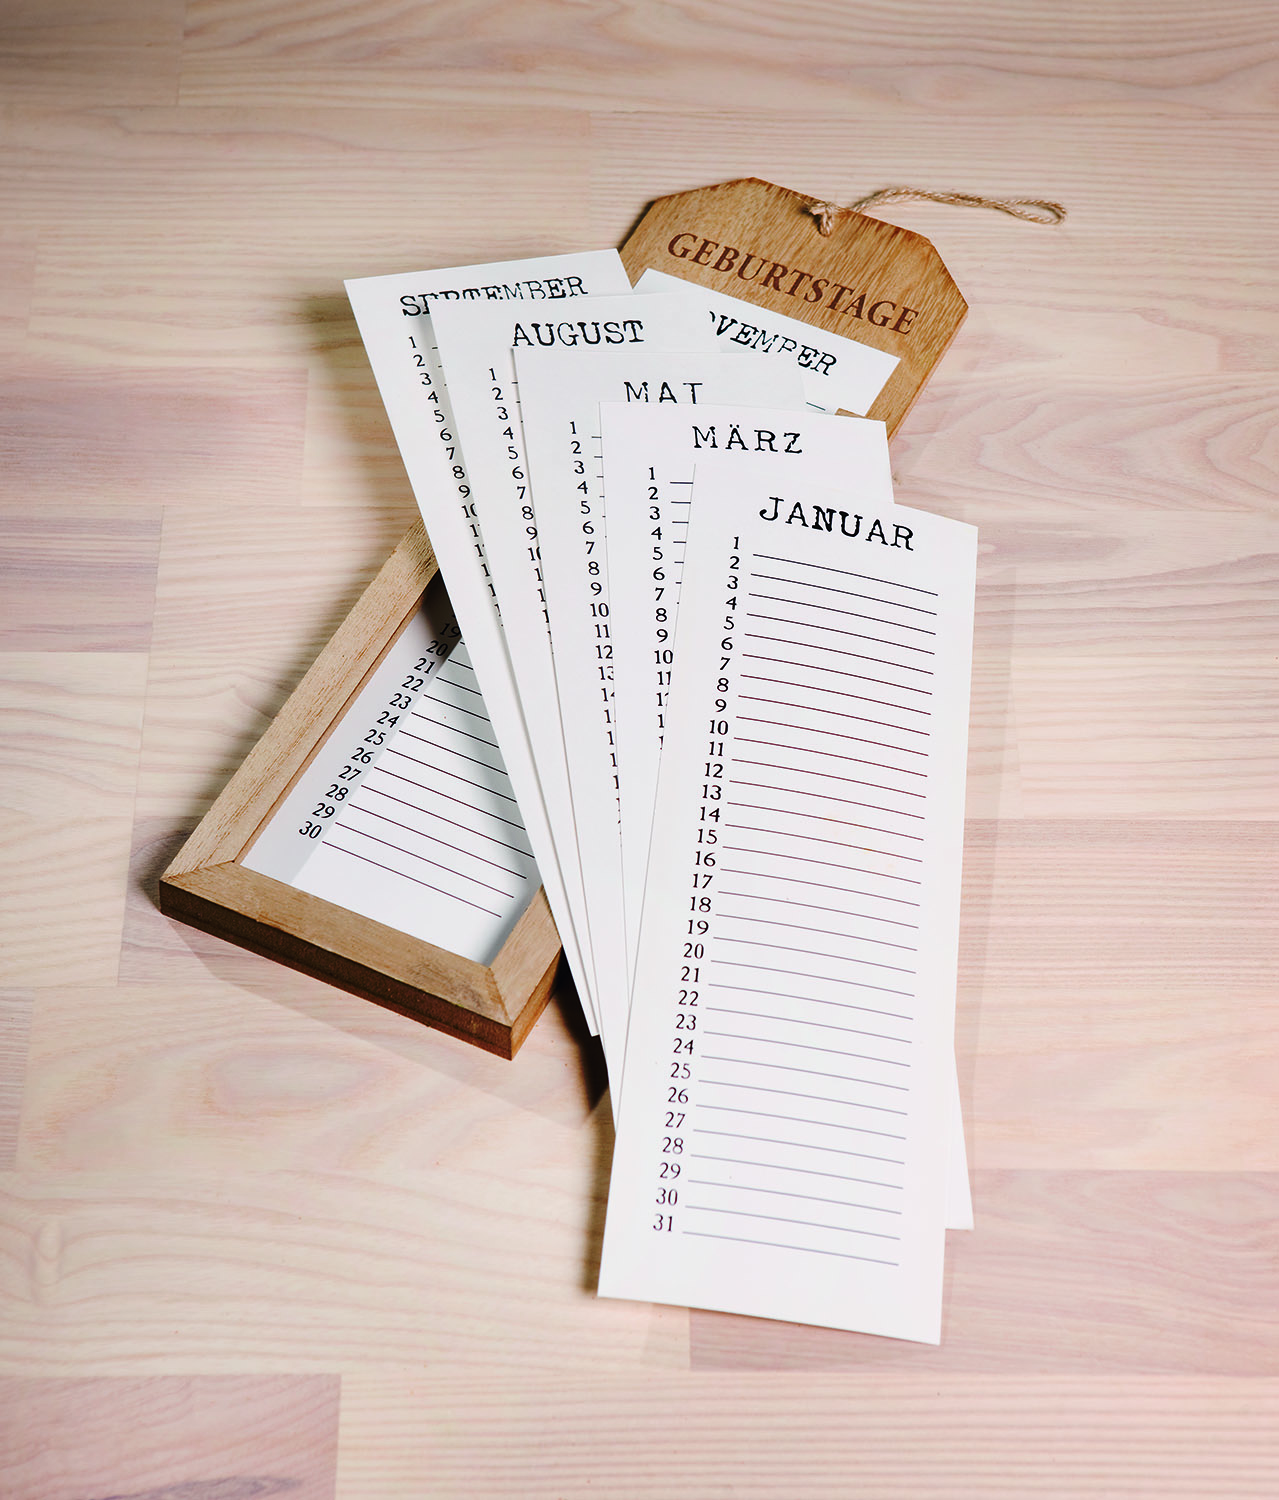 GEBURTSTAGE
SEPTEMBER
1
2
3
4
5
6
7
8
9
AUGUST
1
2
3
4
5
6
7
8
9
VEMBER
MAI
1
2
3
4
5
6
7
8
9
10
11
12
MÄRZ
1
2
3
4
5
6
7
8
9
10
11
JANUAR
1
2
3
4
5
6
7
8
9
10
11
12
13
14
15
16
17
18
19
20
21
22
23
24
25
26
27
28
29
30
31
19
20
21
22
23
24
25
26
27
28
29
30